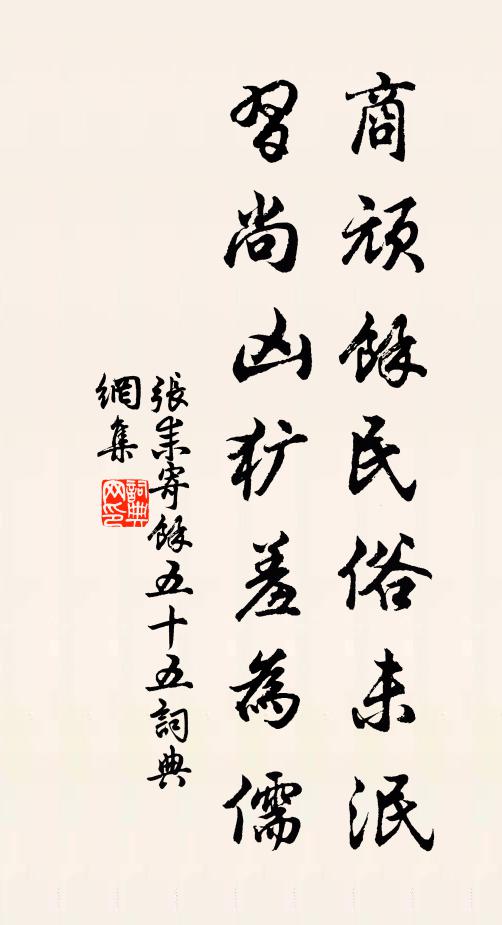 商頑餘民俗未泯
習尚凶犷羞為儒
張耒寄餘五十五詞典
網集
詞典
网印